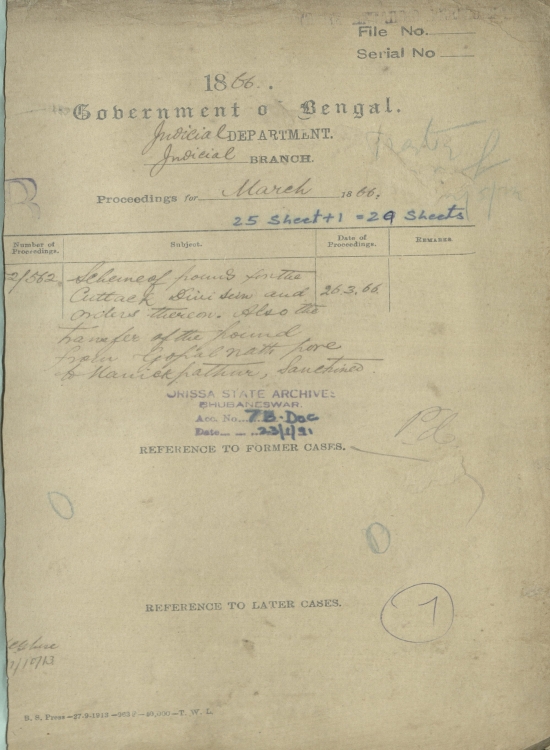 File No.
Serial No
1866.
Government o Bengal.
Judicial DEPARTMENT.
Judicial BRANCH.
Proceedings for March 1866.
25 Sheet+1 = 29 Sheets
Number of Proceedings.
Subject.
Date of Proceedings.
REMARKS
Scheme of pounds for the
Cuttack Division and
orders thereon. Also the
26.3.66
transfer of the pound
from Gopal nath pore
to Manickpatna, Sanctioned.
ORISSA STATE ARCHIVES
BHUBANESWAR.
Acc. No. 7 B. Doc
Date 23/1/91
REFERENCE TO FORMER CASES.
REFERENCE TO LATER CASES.
1
B. S. Press—27-9-1913
T. W. L.